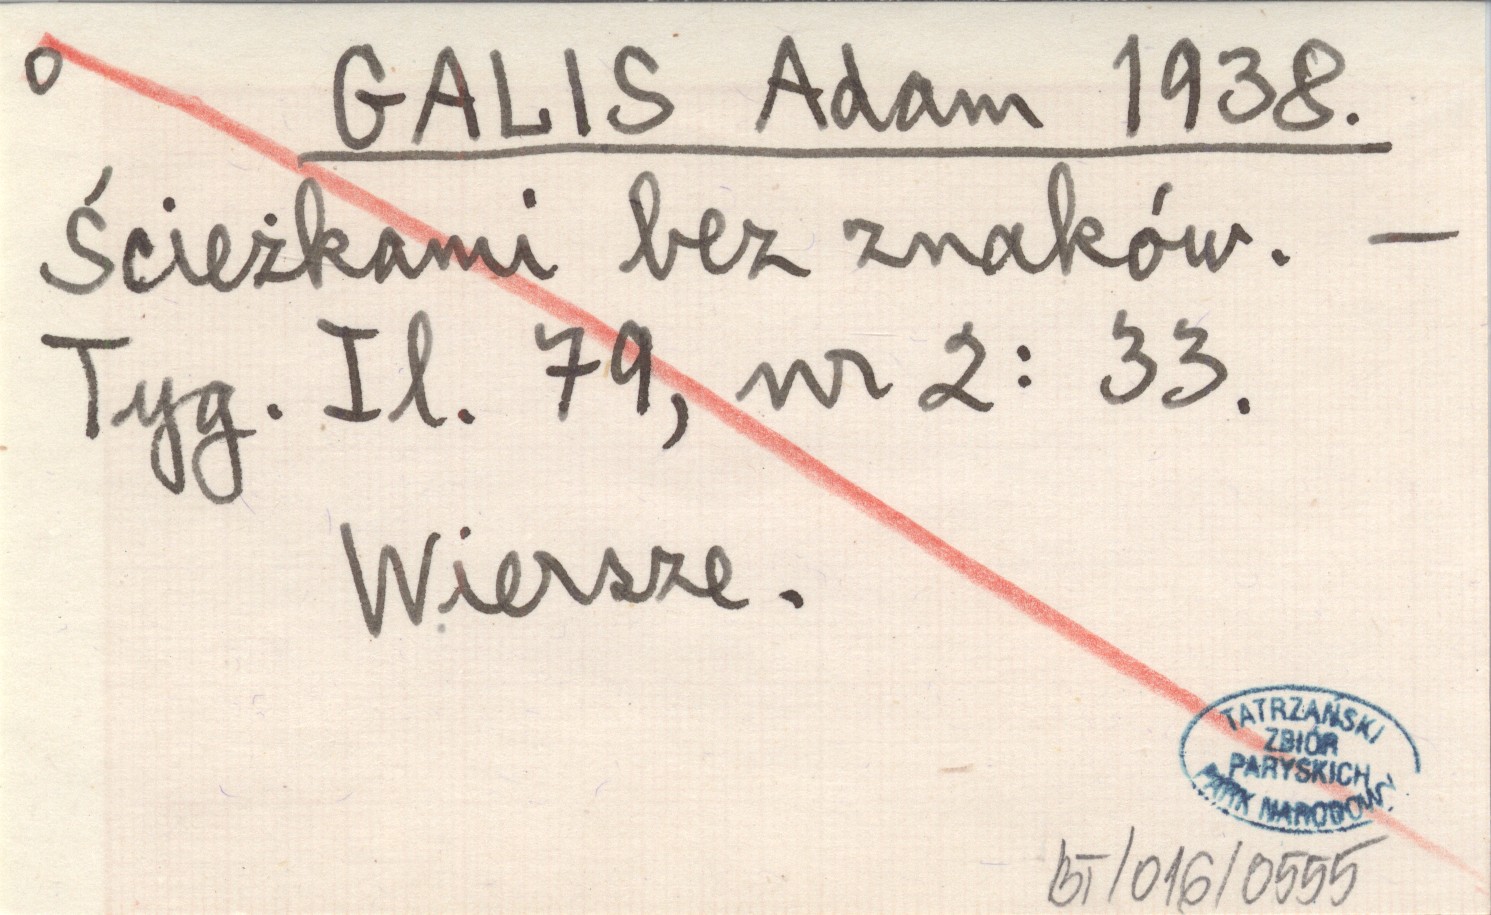 o GALIS Adam 1938.
Ścieżkami bez znaków. —
Tyg. Il. 79, nr 2: 33.
Wiersze.
TATRZAŃSKI
ZBIÓR
PARYSKICH
PARK NARODOWY
BT/016/0555